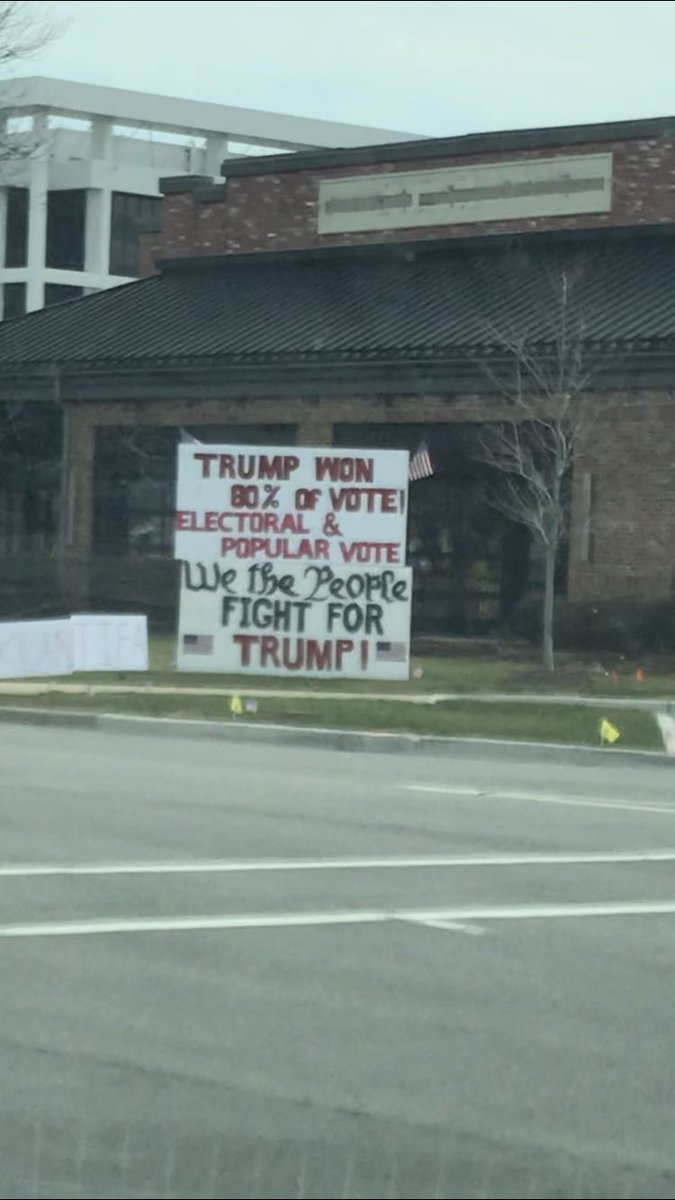 TRUMP WON
80% OF VOTE!
ELECTORAL &
POPULAR VOTE
We the People
FIGHT FOR
TRUMP!